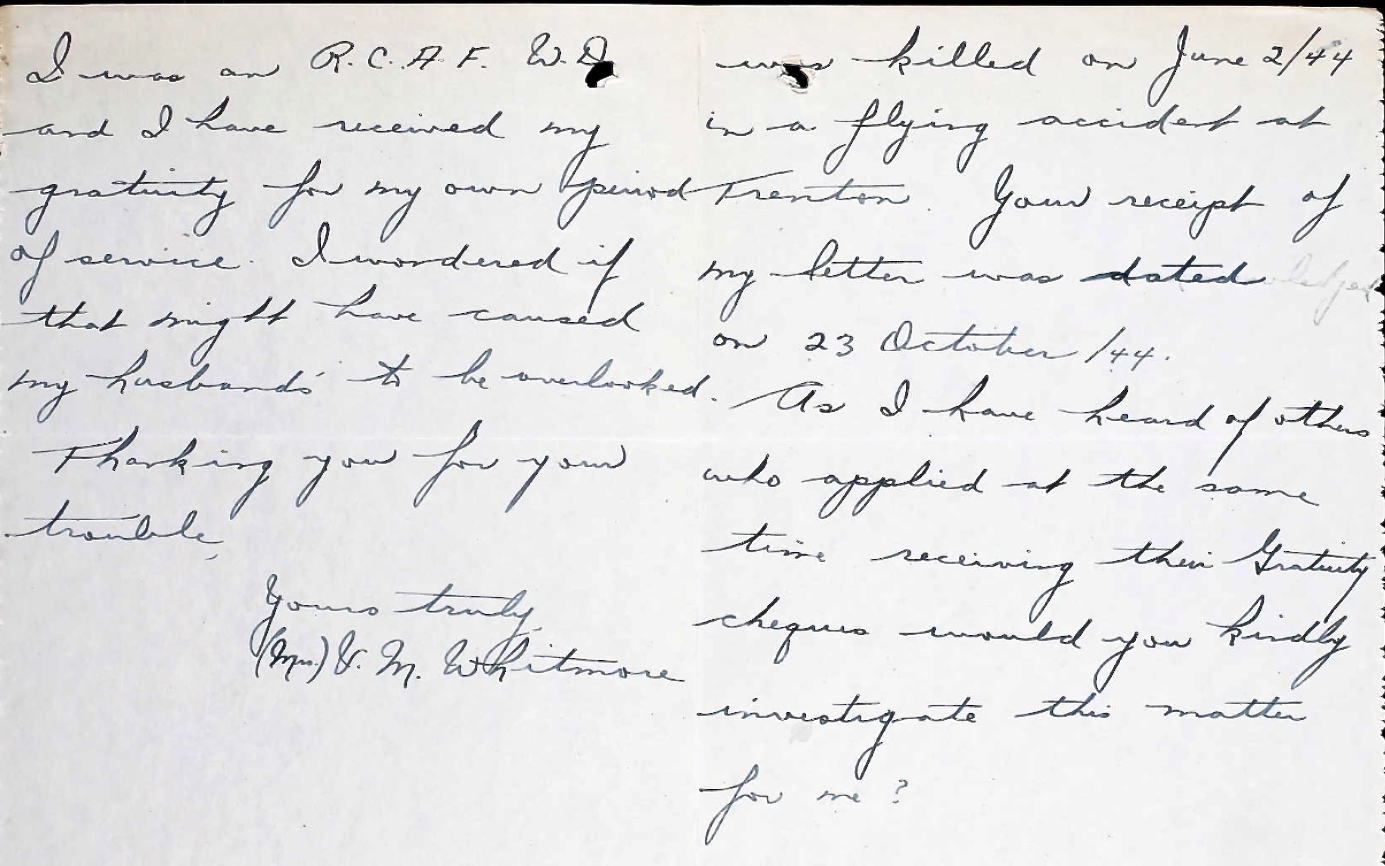 I was an R.C.A.F. W.D
and I have received my
gratuity for my own period
of service. I wondered if
that might have caused
my husbands' to be overlooked.
Thanking you for your
trouble,
Yours truly,
(Mrs.) V. M. Whitmore
was killed on June 2/44
in a flying accident at
Trenton. Your receipt of
my letter was dated
on 23 October /44.
As I have heard of others
who applied at the same
time receiving their Gratuity
cheques would you kindly
investigate this matter
for me?